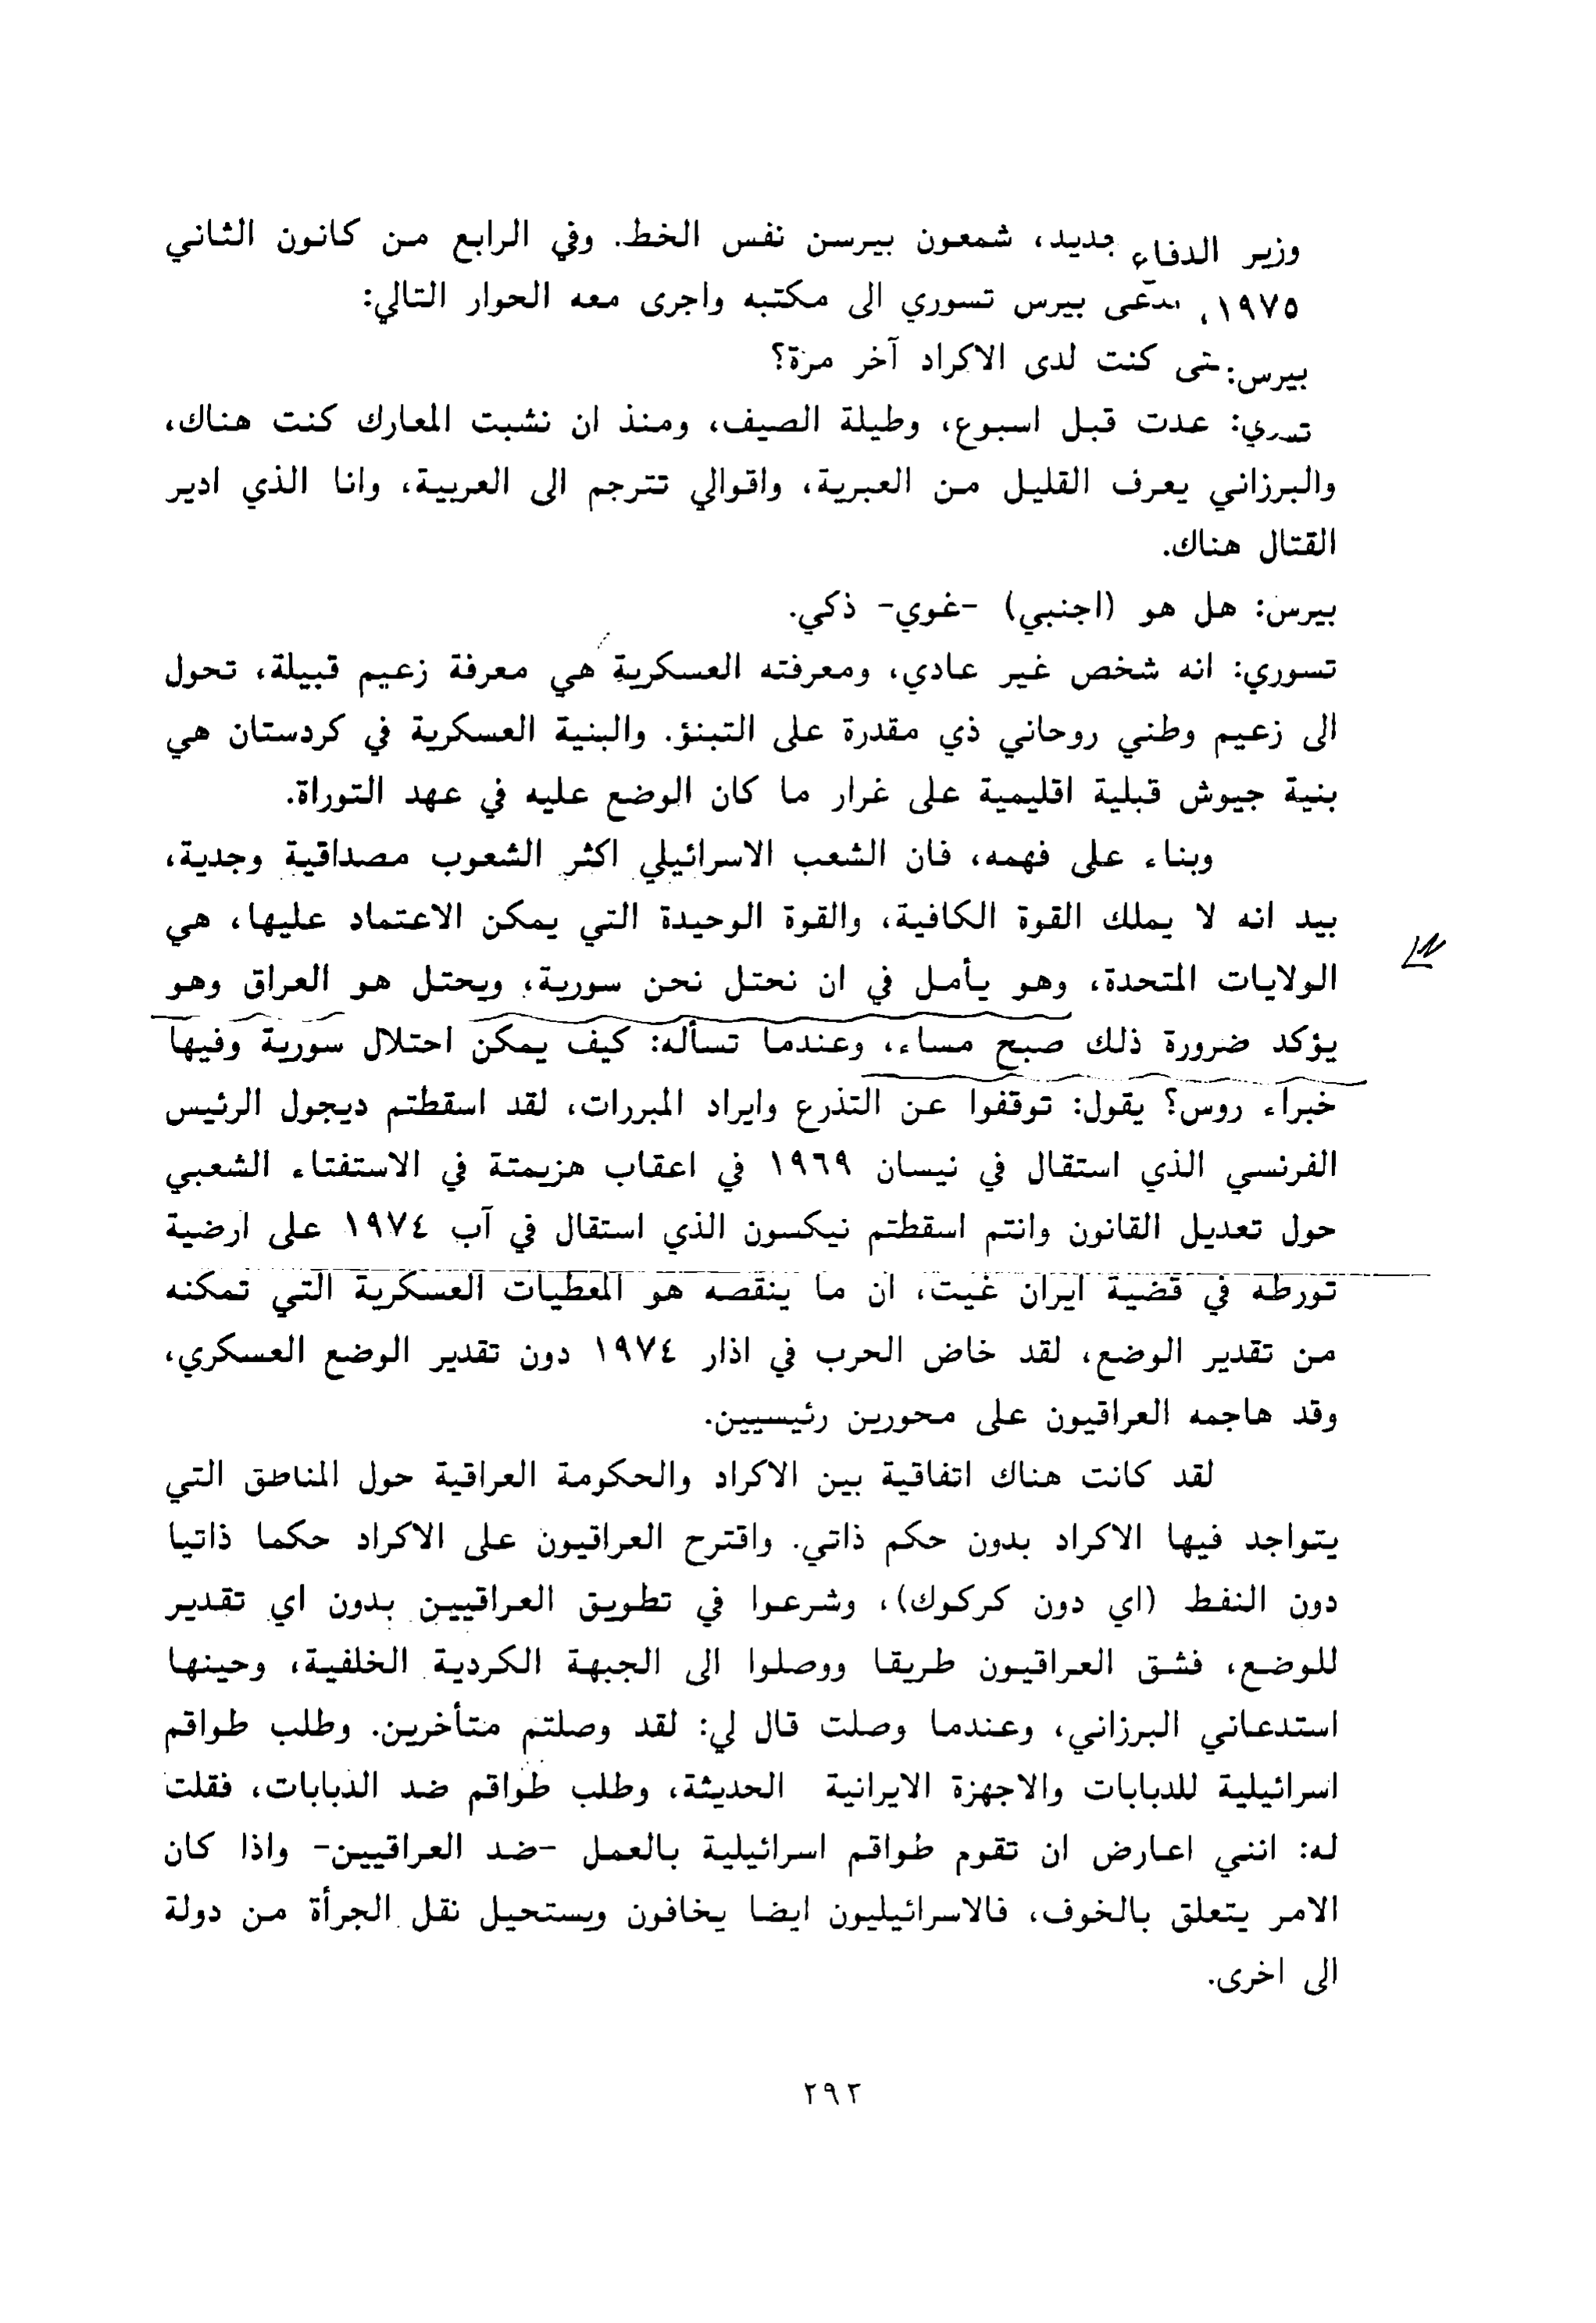 وزير الدفاع جديد، شمعون بيرسن نفس الخط. وفي الرابع من كانون الثاني
١٩٧٥، بيرس تسوري الى مكتبه واجرى معه الحوار التالي:
بيرس: كنت لدى الاكراد آخر مرة؟
عدت قبل اسبوع، وطيلة الصيف، ومنذ ان نشبت المعارك كنت هناك،
والبرزاني يعرف القليل من العبرية، واقوالي تترجم الى العربية، وانا الذي ادير
القتال هناك.
بيرس: هل هو (اجنبي) -غوي- ذكي.
تسوري: انه شخص غير عادي، ومعرفته العسكرية هي معرفة زعيم قبيلة، تحول
الى زعيم وطني روحاني ذي مقدرة على التبنؤ. والبنية العسكرية في كردستان هي
بنية جيوش قبلية اقليمية على غرار ما كان الوضع عليه في عهد التوراة.
وبناء على فهمه، فان الشعب الاسرائيلي اكثر الشعوب مصداقية وجدية،
بيد انه لا يملك القوة الكافية، والقوة الوحيدة التي يمكن الاعتماد عليها، هي
الولايات المتحدة، وهو يأمل في ان نحتل نحن سورية، ويحتل هو العراق وهو
يؤكد ضرورة ذلك صبح مساء، وعندما تسأله: كيف يمكن احتلال سورية وفيها
خبراء روس؟ يقول: توقفوا عن التذرع وايراد المبررات، لقد اسقطتم ديجول الرئيس
الفرنسي الذي استقال في نيسان ١٩٦٩ في اعقاب هزيمتة في الاستفتاء الشعبي
حول تعديل القانون وانتم اسقطتم نيكسون الذي استقال في آب ١٩٧٤ على ارضية
تورطه في قضية ايران غيت، ان ما ينقصه هو المعطيات العسكرية التي تمكنه
من تقدير الوضع، لقد خاض الحرب في اذار ١٩٧٤ دون تقدير الوضع العسكري،
وقد هاجمه العراقيون على محورين رئيسيين.
لقد كانت هناك اتفاقية بين الاكراد والحكومة العراقية حول المناطق التي
يتواجد فيها الاكراد بدون حكم ذاتي. واقترح العراقيون على الاكراد حكما ذاتيا
دون النفط (اي دون كركوك)، وشرعوا في تطويق العراقيين بدون اي تقدير
للوضع، فشق العراقيون طريقا ووصلوا الى الجبهة الكردية الخلفية، وحينها
استدعاني البرزاني، وعندما وصلت قال لي: لقد وصلتم متأخرين. وطلب طواقم
اسرائيلية للدبابات والاجهزة الايرانية الحديثة، وطلب طواقم ضد الدبابات، فقلت
له: انني اعارض ان تقوم طواقم اسرائيلية بالعمل -ضد العراقيين- واذا كان
الامر يتعلق بالخوف، فالاسرائيليون ايضا يخافون ويستحيل نقل الجرأة من دولة
الى اخرى.
٢٩٢